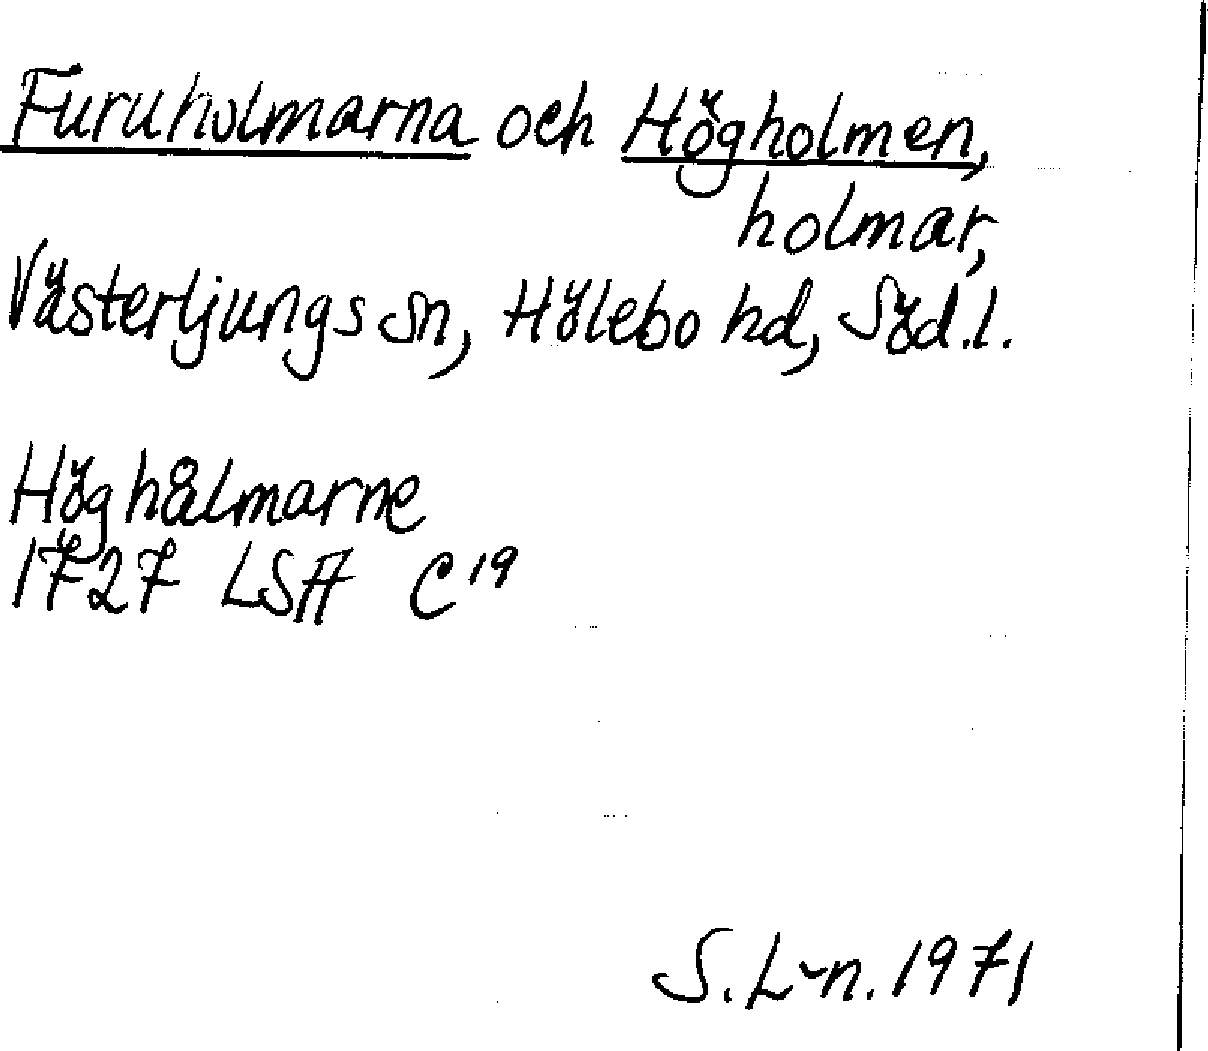 Furuholmarna och Högholmen,
holmar,
Västerljungs sn, Hölebo hd, Söd.l.
Höghålmarne
1727 LSA C19
S.L-n. 1971